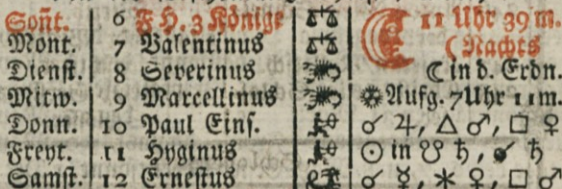 Soñt. 6 F H. 3 Könige ♎ ☾ 11 Uhr 39 m.
Mont. 7 Valentinus ♎ (Nachts
Dienst. 8 Severinus ♏ ☾ in d. Erdn.
Mitw. 9 Marcellinus ♏ ☼ Aufg. 7 Uhr 11 m.
Donn. 10 Paul Eins. ♐ ☌ ♃, △ ♂, □ ♀
Freyt. 11 Hyginus ♐ ☉ in ☋ ♄, ☌ ♄
Samst. 12 Ernestus ☌ ☿, ⚹ ♀, □ ♂